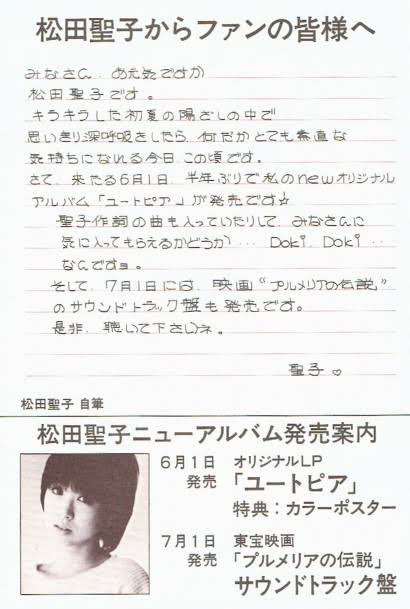 松田聖子からファンの皆様へ
みなさん、お元気ですか
松田聖子です。
キラキラした初夏の陽ざしの中で
思いきり深呼吸をしたら、何だかとても素直な
気持ちになれる今日この頃です。
さて、来たる6月1日、半年ぶりで私のnewオリジナル
アルバム「ユートピア」が発売です☆
聖子作詞の曲も入っていたりして、みなさんに
気に入ってもらえるかどうか…. Doki. Doki..
なんですョ。
そして、7月1日には、映画“プルメリアの伝説”
のサウンドトラック盤も発売です。
是非、聴いて下さいネ。
聖子♡
松田聖子 自筆
松田聖子ニューアルバム発売案内
6月1日 オリジナルLP
発売 「ユートピア」
特典：カラーポスター
7月1日 東宝映画
発売 「プルメリアの伝説」
サウンドトラック盤